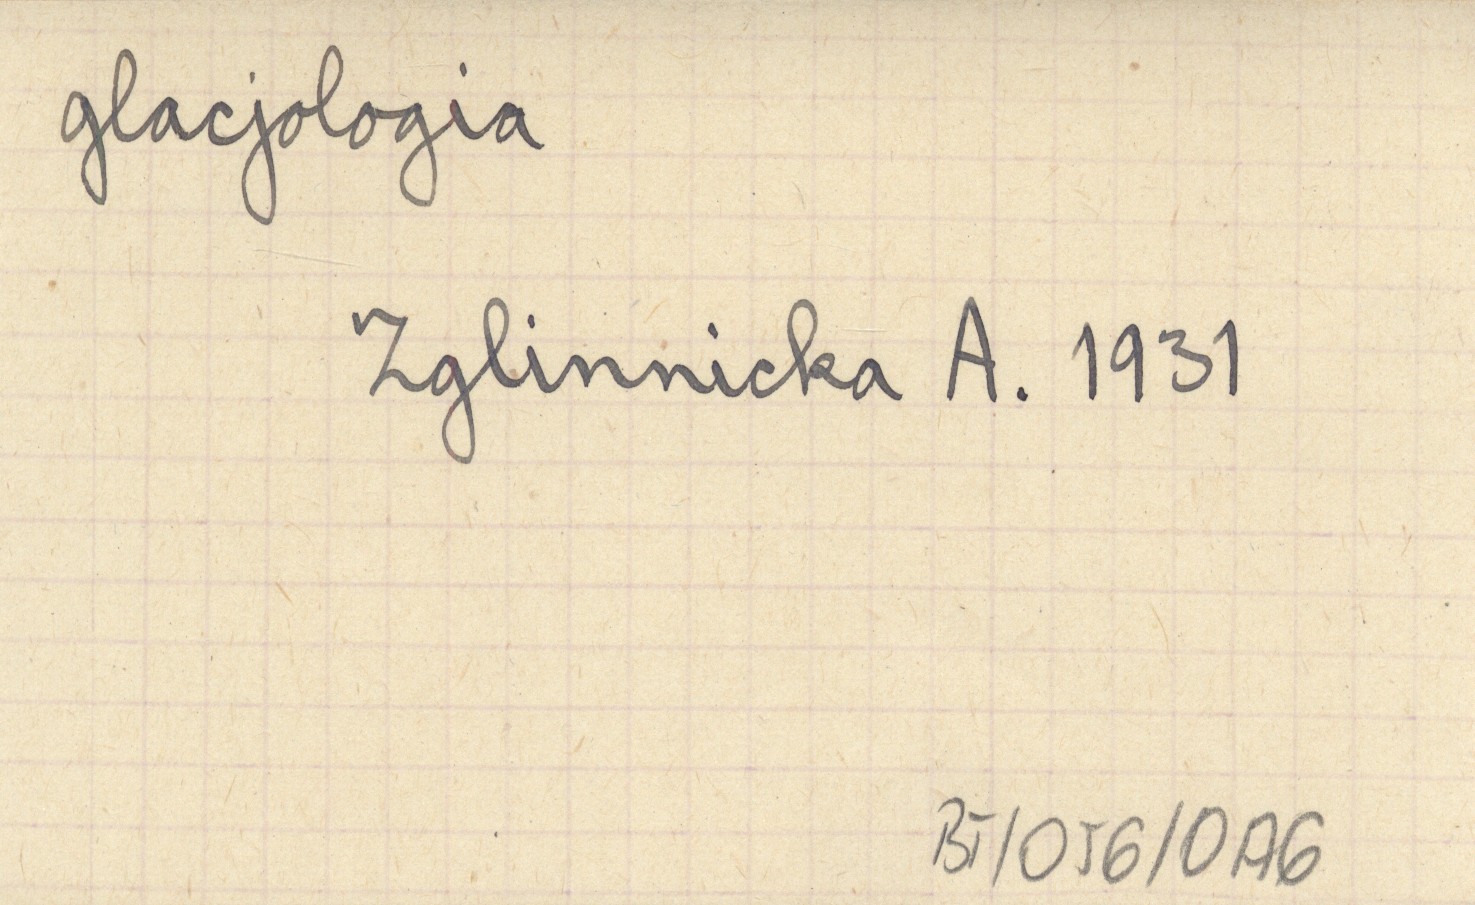 glacjologia
Zglinnicka A. 1931
BJ/OJG/OAG